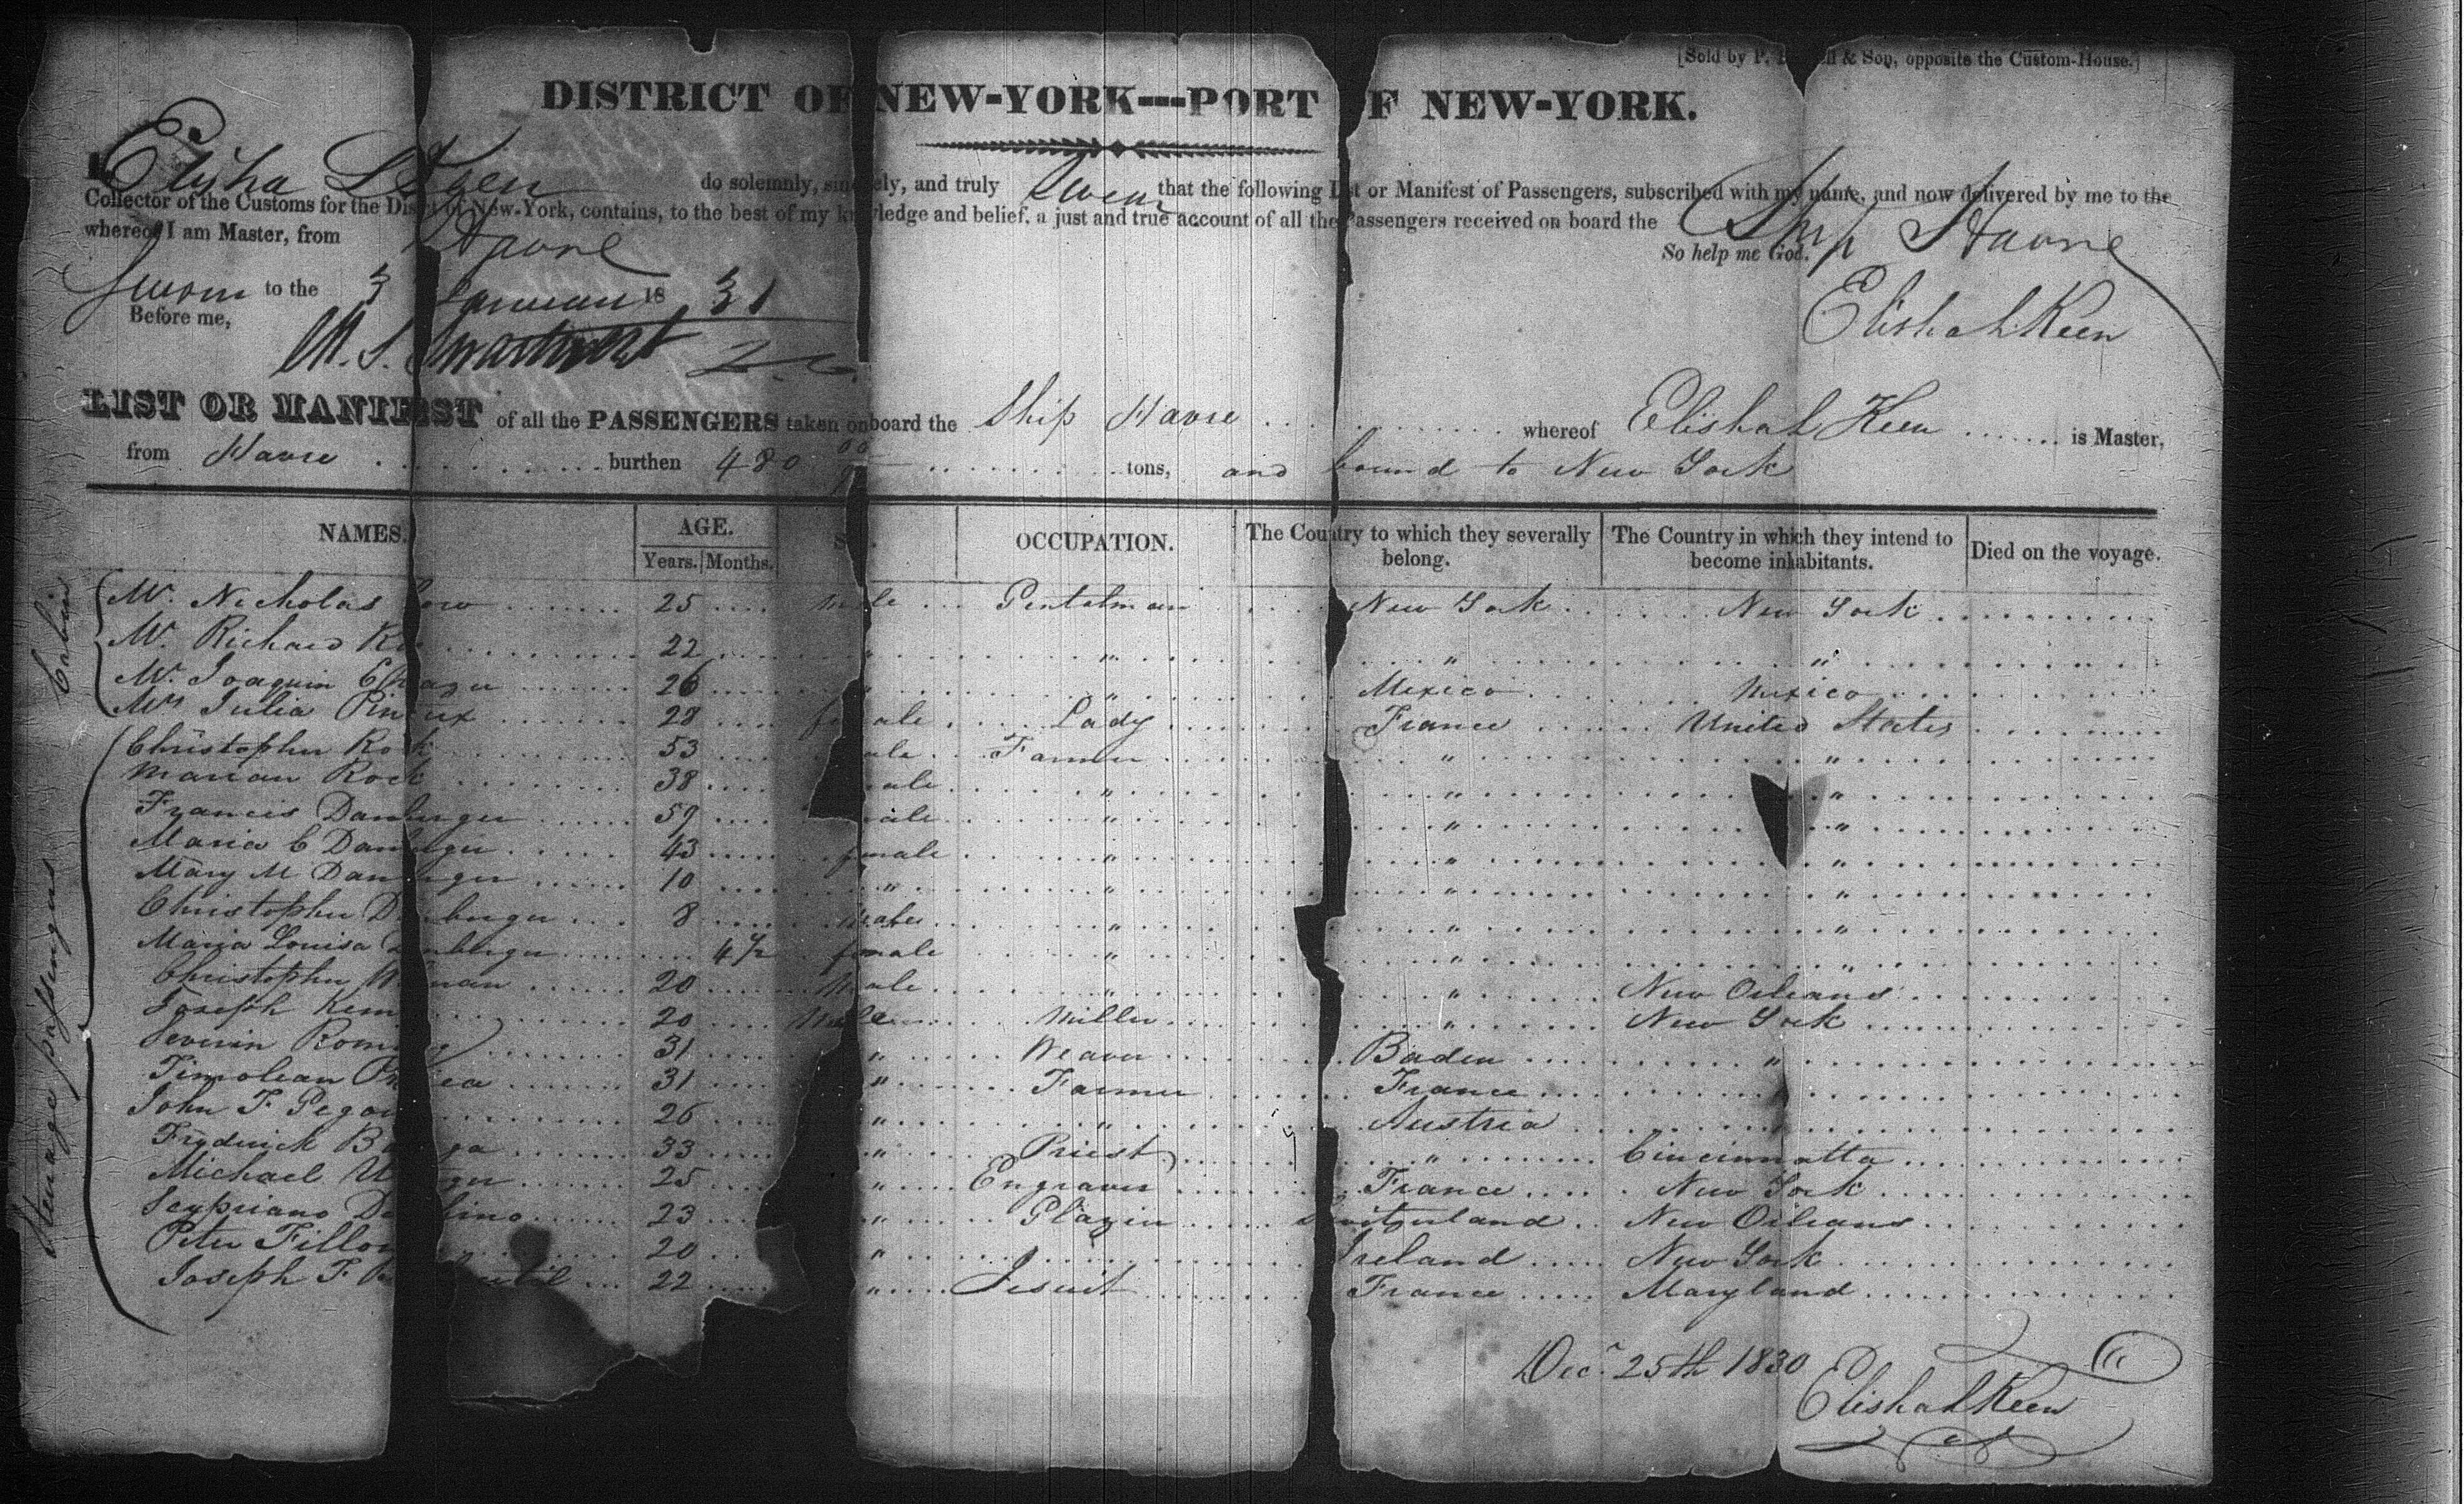 [Sold by P. & Son, opposite the Custom-House.]
DISTRICT OF NEW-YORK---PORT OF NEW-YORK.
I Elisha L Keen do solemnly, sincerely, and truly Swear that the following List or Manifest of Passengers, subscribed with my name, and now delivered by me to the
Collector of the Customs for the District of New-York, contains, to the best of my knowledge and belief, a just and true account of all the Passengers received on board the Ship Havre
whereof I am Master, from Havre So help me God.
Sworn to the 3 January 18 31 Elisha L Keen
Before me,
M. S. Swartwout
LIST OR MANIFEST of all the PASSENGERS taken on board the Ship Havre whereof Elisha L Keen is Master,
from Havre burthen 480 tons, and bound to New York
NAMES. AGE. SEX. OCCUPATION. The Country to which they severally belong. The Country in which they intend to become inhabitants. Died on the voyage.
Years. Months.
Cabin
Mr. Nicholas Low 25 male Gentelman New York New York
Mr. Richard 22 " " " "
Mr. Joaquin 26 " " Mexico Mexico
Mrs Julia 28 female Lady France United States
Steerage passengers
Christopher Rock 53 male Farmer " "
Marian Rock 38 male " " "
Francis Danberger 59 male " " "
Maria C Danberger 43 female " " "
Mary M Danberger 10 " " " "
Christopher Danberger 8 Male " " "
Maria Louisa Danberger 4½ female " " "
Christopher 20 Male " " New Orleans
Joseph 20 Male Miller " New York
Severin 31 " Weaver Baden "
Timolean 31 " Farmer France
John F 26 " " Austria
Frederick 33 " Priest " Cincinnatta
Michael 25 " Engraver France New York
Scypriano 23 " Glazier Switzerland New Orleans
Peter 20 " Ireland New York
Joseph F 22 " Jesuit France Maryland
Decr 25th 1830
Elisha L Keen